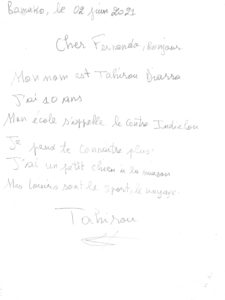 Bamako, le 02 juin 2021
Cher Fernando, bonjour
Mon nom est Tahirou Diarra
J'ai 10 ans
Mon école s'appelle le centre
Je peux te connaitre plus.
J'ai un petit chien à la maison
Mes loisirs sont le sport, le voyage.
Tahirou